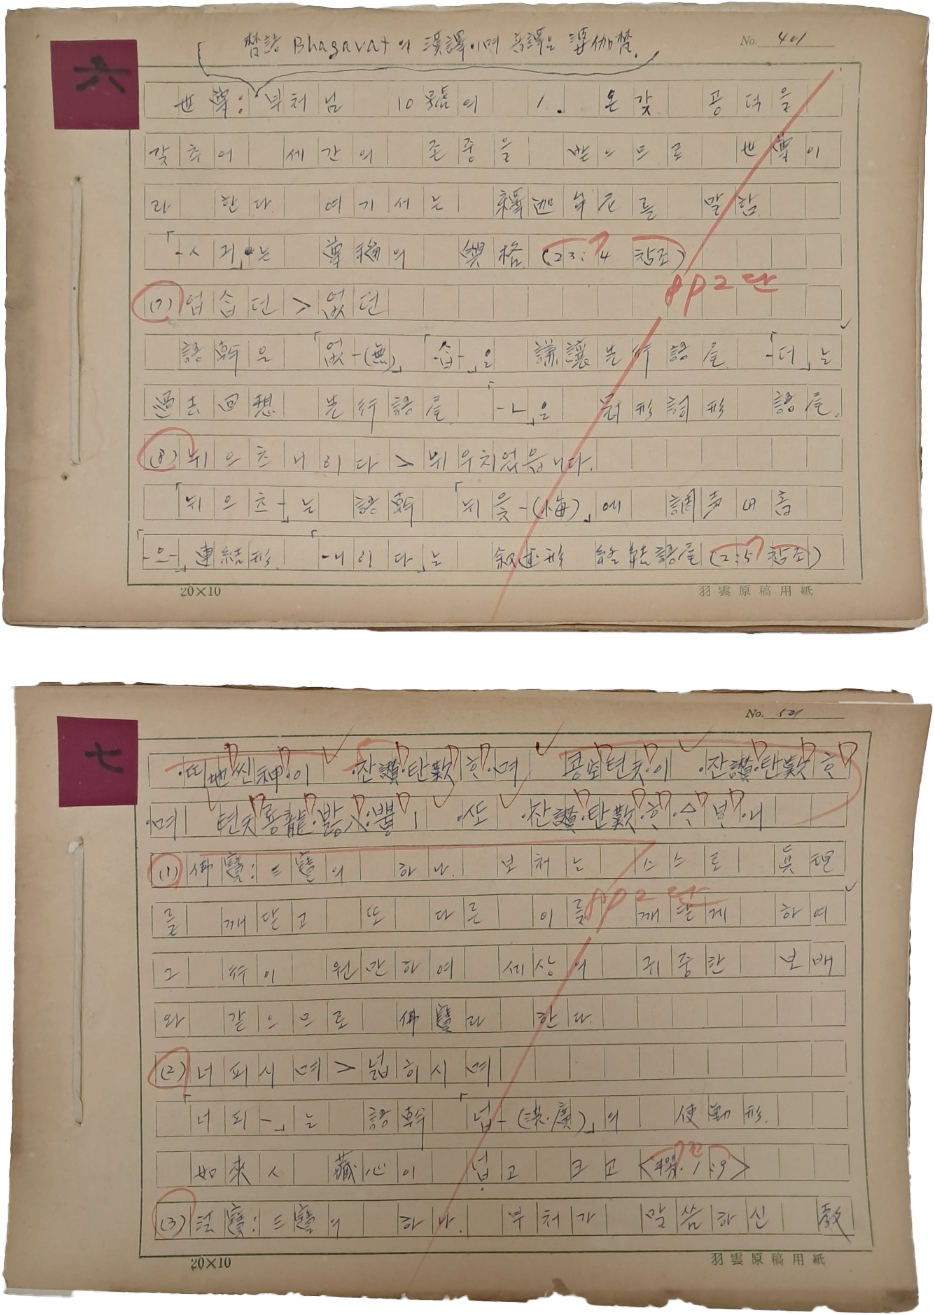 梵語 Bhagavat의 漢譯이며 音譯은 婆伽梵.
No. 401
六
世尊: 부처님 10號의 1. 온갖 공덕을
갖추어 세간의 존중을 받으므로 世尊이
라 한다. 여기서는 釋迦牟尼를 말함.
「-ㅅ긔」는 尊稱의 與格 (23:4 참조)
pp2단
(7) 업습던 > 없던
語幹은 「없-(無)」 「-습-」은 謙讓先行語尾 「-더-」는
過去回想 先行語尾 「-ㄴ」은 冠形詞形 語尾.
(8) 뉘으츠니이다 > 뉘우치었읍니다.
「뉘으츠-」는 語幹 「뉘읓-(悔)」에 調聲母音
「-으-」連結形 「-니이다」는 敍述形 終結語尾 (2:5 참조)
20×10
羽雲原稿用紙
No. 501
七
띠地씬神이 잔讚탄歎ᄒᆞ며 콩보텬天이 잔讚탄歎ᄒᆞ
며 텬天龍八뿌ㅣ 또 잔讚탄歎ᄒᆞᅀᆞᄫᆞ니
(1) 佛寶: 三寶의 하나. 부처는 스스로 眞理
pp2단
를 깨닫고 또 다른 이를 깨닫게 하여
그 行이 원만하여 세상의 귀중한 보배
와 같으므로 佛寶라 한다.
(2) 너피시며 > 넓히시며
「너피-」는 語幹 「넙-(洪·廣)」의 使動形.
如來ㅅ 藏心이 넙고 크고 <1:9>
(3) 法寶: 三寶의 하나. 부처가 말씀하신 敎
20×10
羽雲原稿用紙